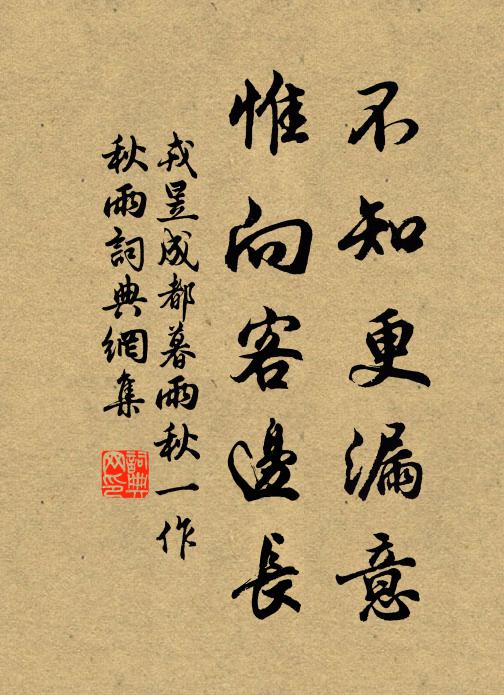 不知更漏意
惟向客邊長
戎昱成都暮雨秋一作
秋雨詞典網集
詞典
网印